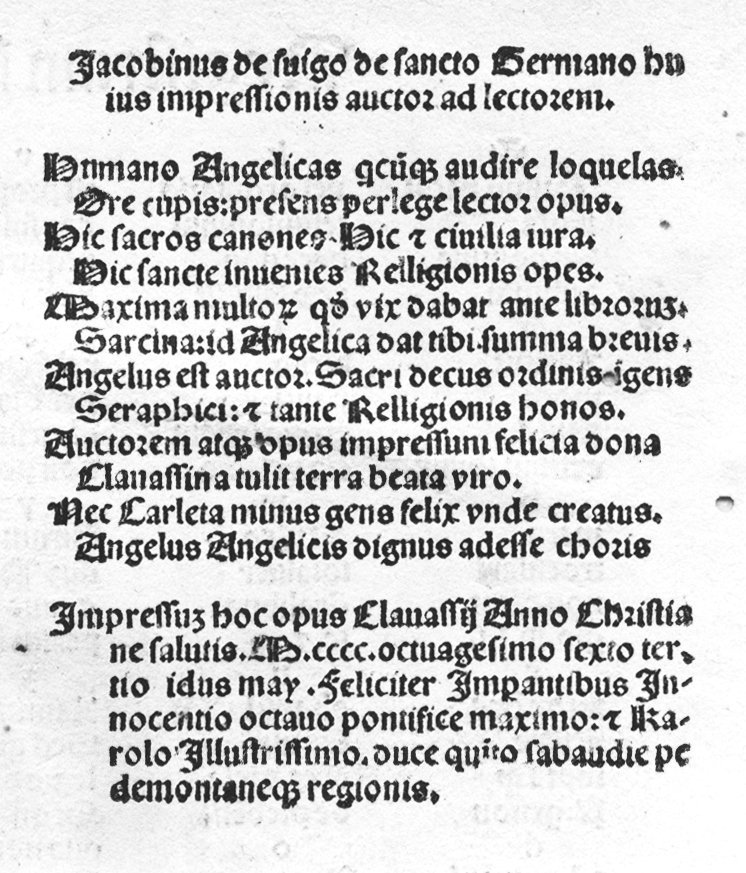 Jacobinus de suigo de sancto Germano hu
ius impressionis auctor ad lectorem.
Humano Angelicas qcūqꝫ audire loquelas.
Ore cupis: presens perlege lector opus.
Hic sacros canones. Hic ⁊ ciuilia iura.
Hic sancte inuenies Relligionis opes.
Maxima multoꝝ qđ vix dabat ante libroruꝫ.
Sarcina: id Angelica dat tibi summa breuis.
Angelus est auctor. Sacri decus ordinis īgens
Seraphici: ⁊ tante Relligionis honos.
Auctorem atqꝫ opus impressum felicia dona
Clauassina tulit terra beata viro.
Nec Carleta minus gens felix vnde creatus.
Angelus Angelicis dignus adesse choris
Impressuꝫ hoc opus Clauassij Anno Christia
ne salutis. M.cccc.octuagesimo sexto ter-
tio idus may. Feliciter Imꝑantibus In-
nocentio octauo pontifice maximo: ⁊ Ka-
rolo Illustrissimo. duce quīto sabaudie pe
demontaneqꝫ regionis.